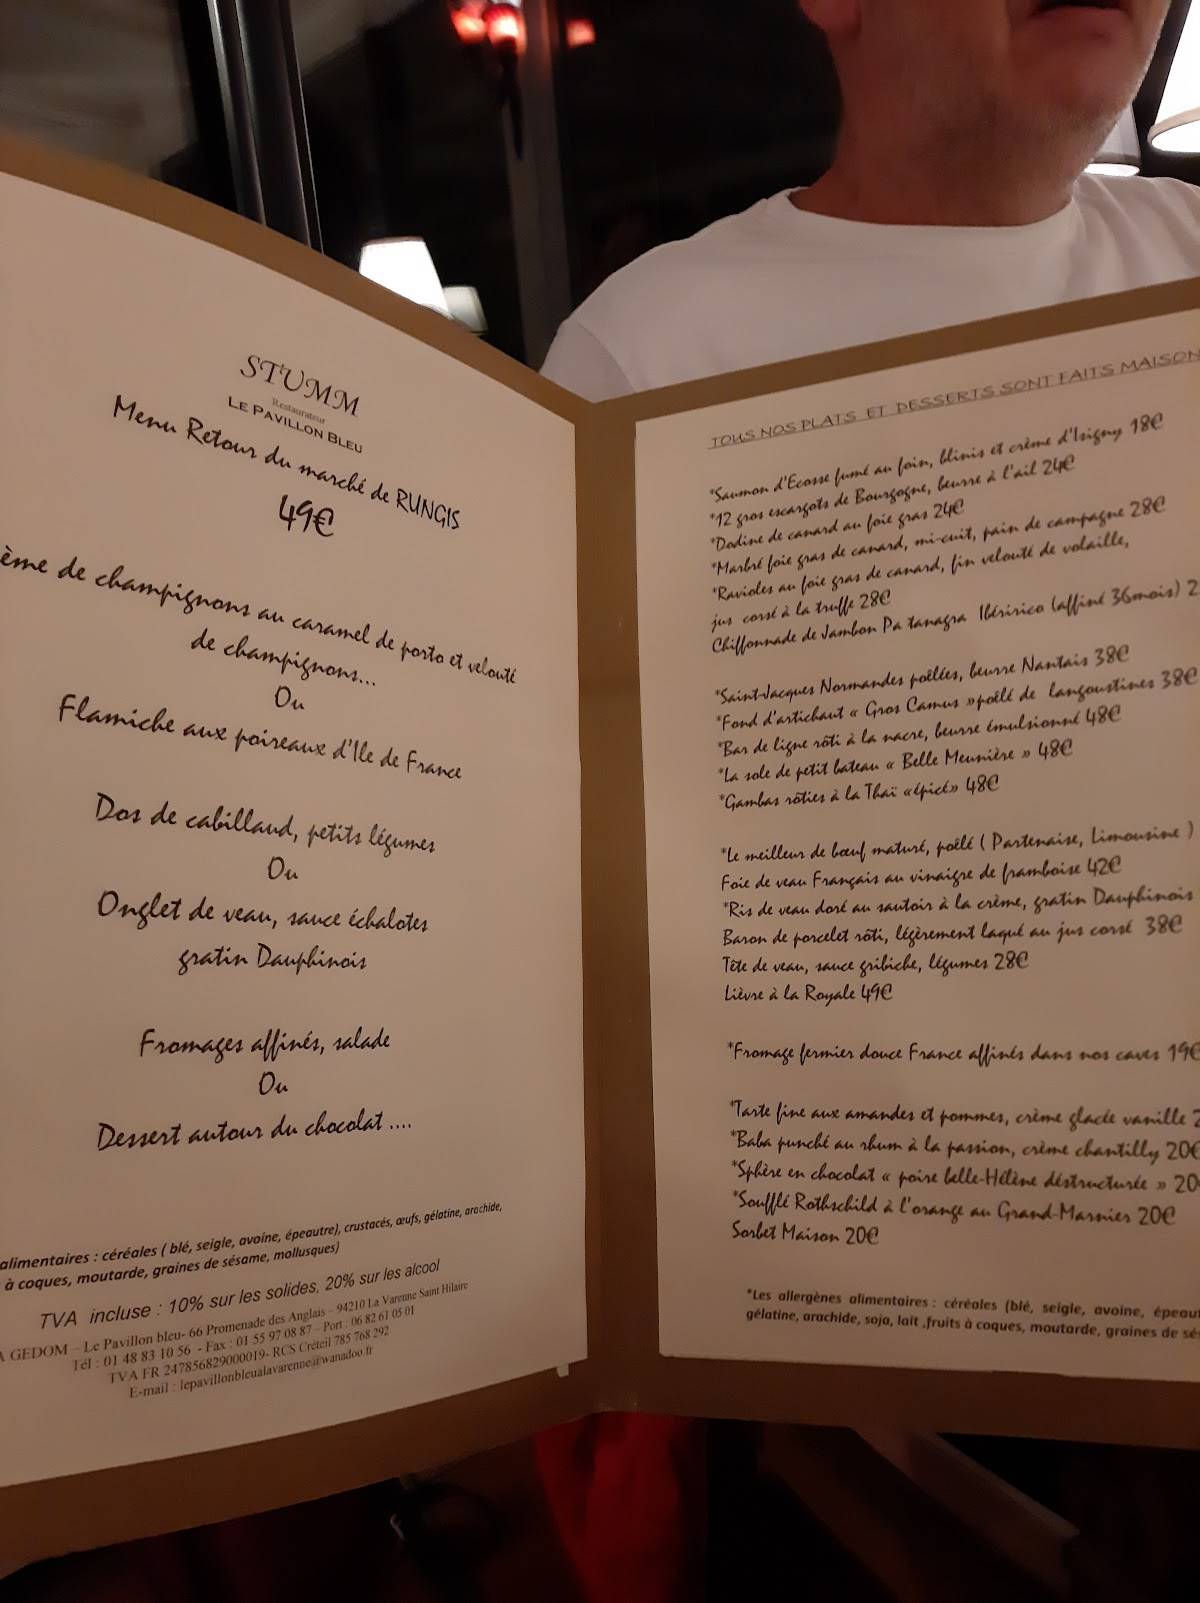 STUMM
Restaurateur
LE PAVILLON BLEU
Menu Retour du marché de RUNGIS
49€
ème de champignons au caramel de porto et velouté
de champignons...
Ou
Flamiche aux poireaux d'Ile de France
Dos de cabillaud, petits légumes
Ou
Onglet de veau, sauce échalotes
gratin Dauphinois
Fromages affinés, salade
Ou
Dessert autour du chocolat ....
alimentaires : céréales ( blé, seigle, avoine, épeautre), crustacés, œufs, gélatine, arachide,
à coques, moutarde, graines de sésame, mollusques)
TVA incluse : 10% sur les solides, 20% sur les alcool
A GEDOM – Le Pavillon bleu- 66 Promenade des Anglais – 94210 La Varenne Saint Hilaire
Tél : 01 48 83 10 56 - Fax : 01 55 97 08 87 – Port : 06 82 61 05 01
TVA FR 247856829000019- RCS Créteil 785 768 292
E-mail : lepavillonbleualavarenne@wanadoo.fr
TOUS NOS PLATS ET DESSERTS SONT FAITS MAISON
*Saumon d'Ecosse fumé au foin, blinis et crème d'Isigny 18€
*12 gros escargots de Bourgogne, beurre à l'ail 24€
*Dodine de canard au foie gras 24€
*Marbré foie gras de canard, mi-cuit, pain de campagne 28€
*Ravioles au foie gras de canard, fin velouté de volaille,
jus corsé à la truffe 28€
Chiffonnade de Jambon Pa tanagra Ibéririco (affiné 36mois) 2
*Saint-Jacques Normandes poêlées, beurre Nantais 38€
*Fond d'artichaut « Gros Camus »poêlé de langoustines 38€
*Bar de ligne rôti à la nacre, beurre émulsionné 48€
*La sole de petit bateau « Belle Meunière » 48€
*Gambas rôties à la Thaï «épicé» 48€
*Le meilleur de bœuf maturé, poêlé ( Partenaise, Limousine )
Foie de veau Français au vinaigre de framboise 42€
*Ris de veau doré au sautoir à la crème, gratin Dauphinois
Baron de porcelet rôti, légèrement laqué au jus corsé 38€
Tête de veau, sauce gribiche, légumes 28€
Lièvre à la Royale 49€
*Fromage fermier douce France affinés dans nos caves 19€
*Tarte fine aux amandes et pommes, crème glacée vanille 2
*Baba punché au rhum à la passion, crème chantilly 20€
*Sphère en chocolat « poire belle-Hélène déstructurée » 20
*Soufflé Rothschild à l'orange au Grand-Marnier 20€
Sorbet Maison 20€
*Les allergènes alimentaires : céréales (blé, seigle, avoine, épeaut
gélatine, arachide, soja, lait ,fruits à coques, moutarde, graines de sés